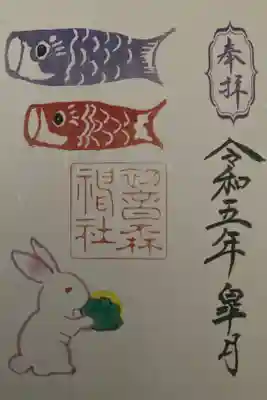 奉拝
令和五年皐月
森
神社